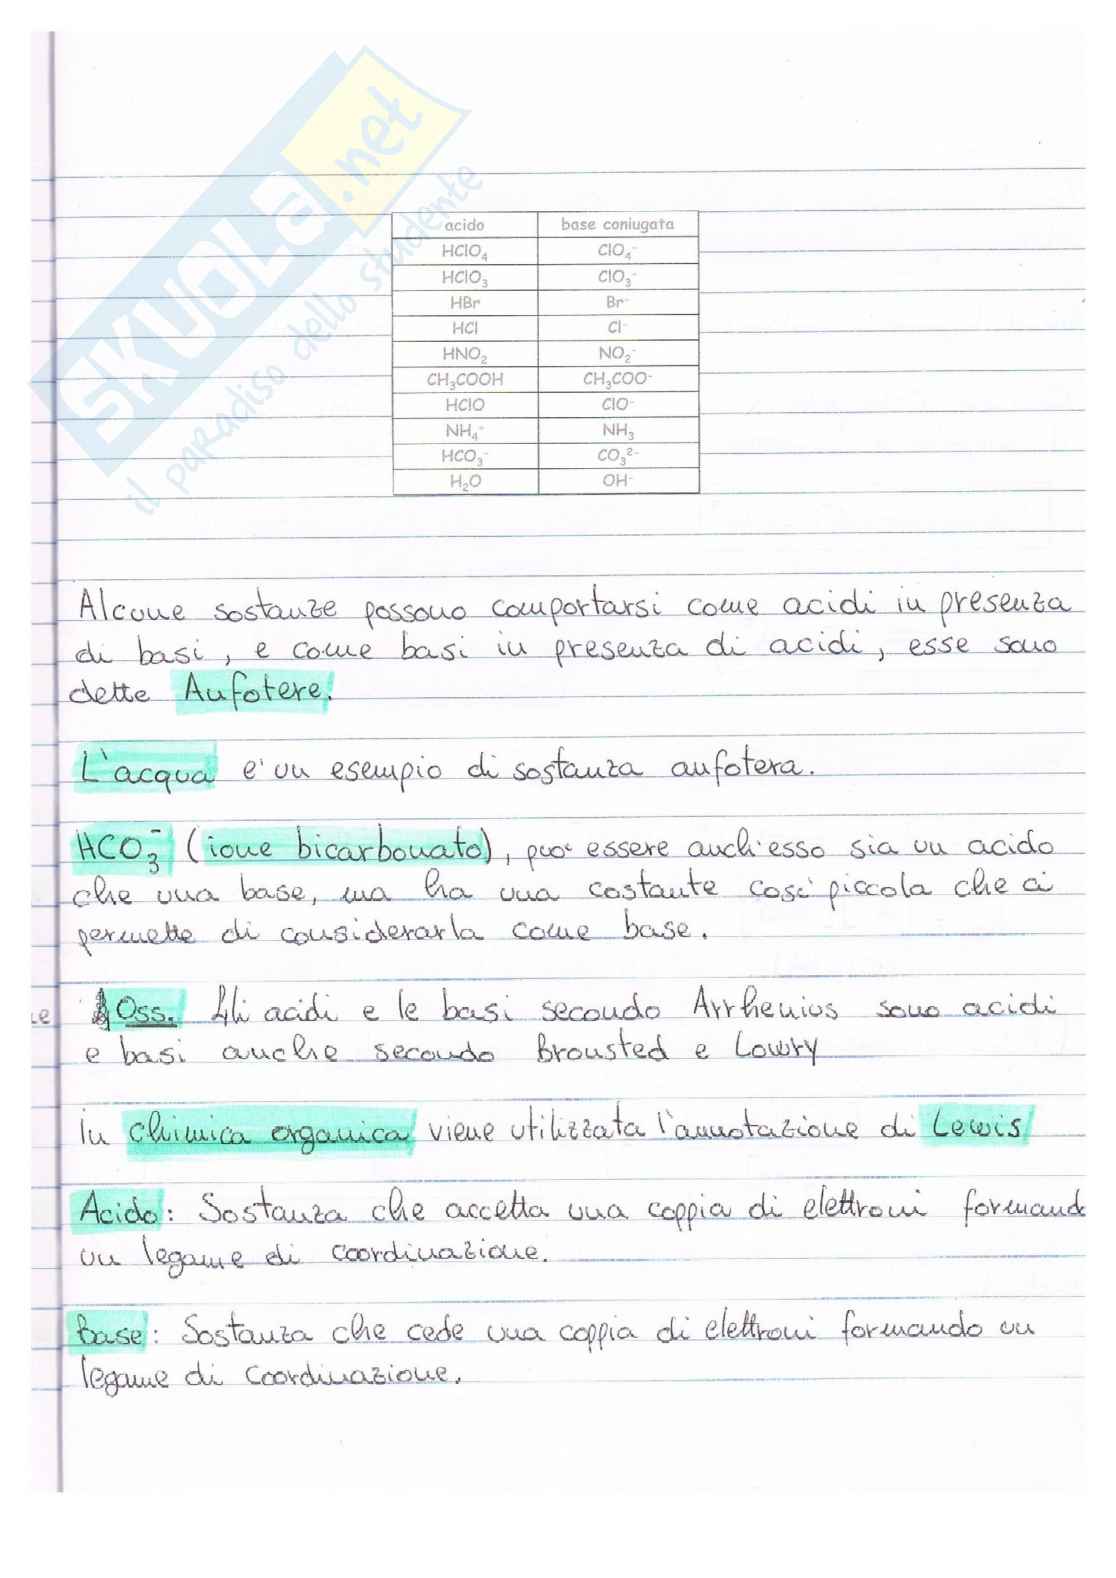 SKUOLA.net
il paradiso dello studente
acido base coniugata
HClO₄ ClO₄⁻
HClO₃ ClO₃⁻
HBr Br⁻
HCl Cl⁻
HNO₂ NO₂⁻
CH₃COOH CH₃COO⁻
HClO ClO⁻
NH₄⁺ NH₃
HCO₃⁻ CO₃²⁻
H₂O OH⁻
Alcune sostanze possono comportarsi come acidi in presenza
di basi, e come basi in presenza di acidi, esse sono
dette Anfotere.
L'acqua e' un esempio di sostanza anfotera.
HCO₃⁻ (ione bicarbonato), puo' essere anch'esso sia un acido
che una base, ma ha una costante cosi' piccola che ci
permette di considerarla come base.
Oss. Gli acidi e le basi secondo Arrhenius sono acidi
e basi anche secondo Bronsted e Lowry
In chimica organica viene utilizzata l'annotazione di Lewis
Acido: Sostanza che accetta una coppia di elettroni formand
un legame di coordinazione.
Base: Sostanza che cede una coppia di elettroni formando un
legame di coordinazione.